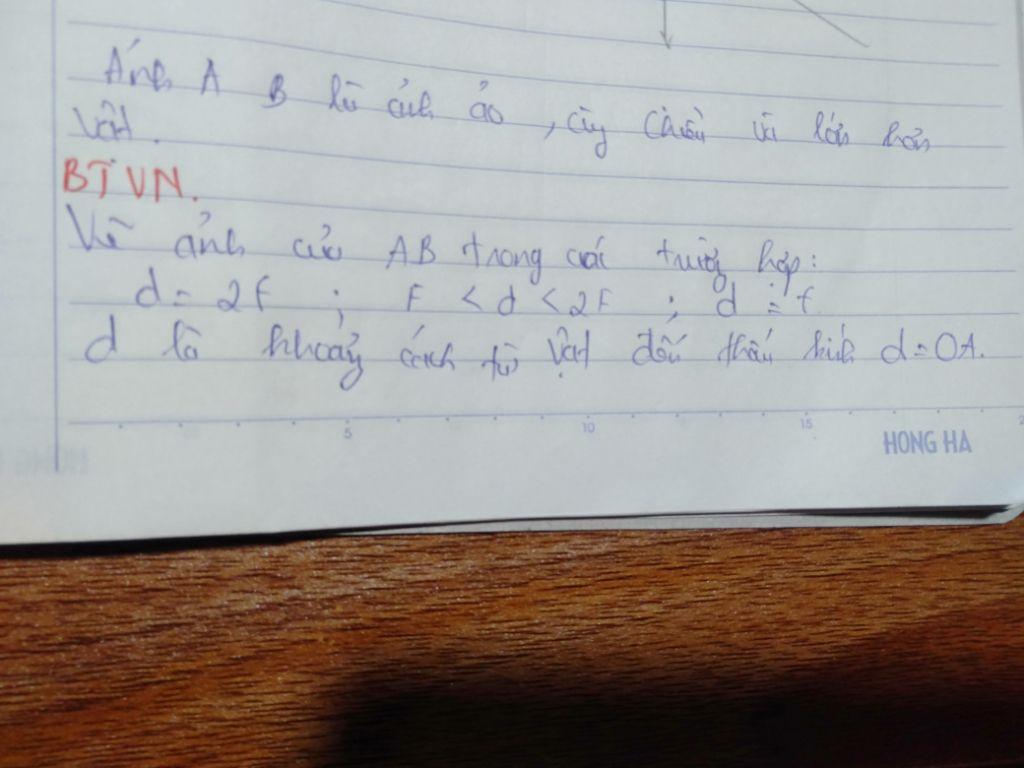 Ảnh A B là ảnh ảo, cùng chiều và lớn hơn
Vật.
BTVN.
Vẽ ảnh của AB trong các trường hợp:
d = 2f ; F < d < 2F ; d = f.
d là khoảng cách từ vật đến thấu kính d = OA.
5 10 15
HONG HA